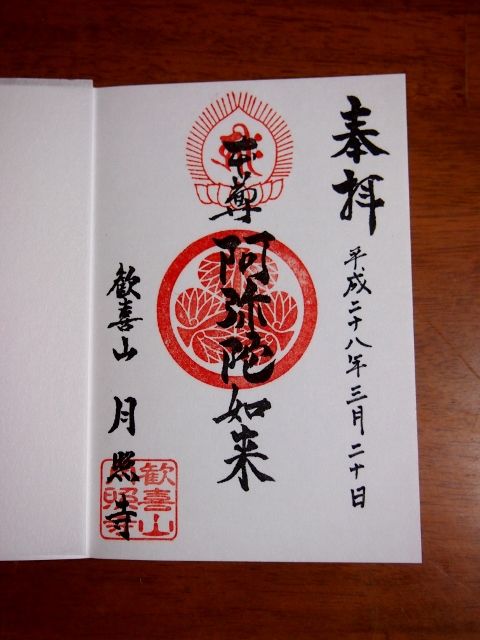 奉拝
平成二十八年三月二十日
本尊
阿弥陀如来
歓喜山 月照寺
歓喜山
月照寺